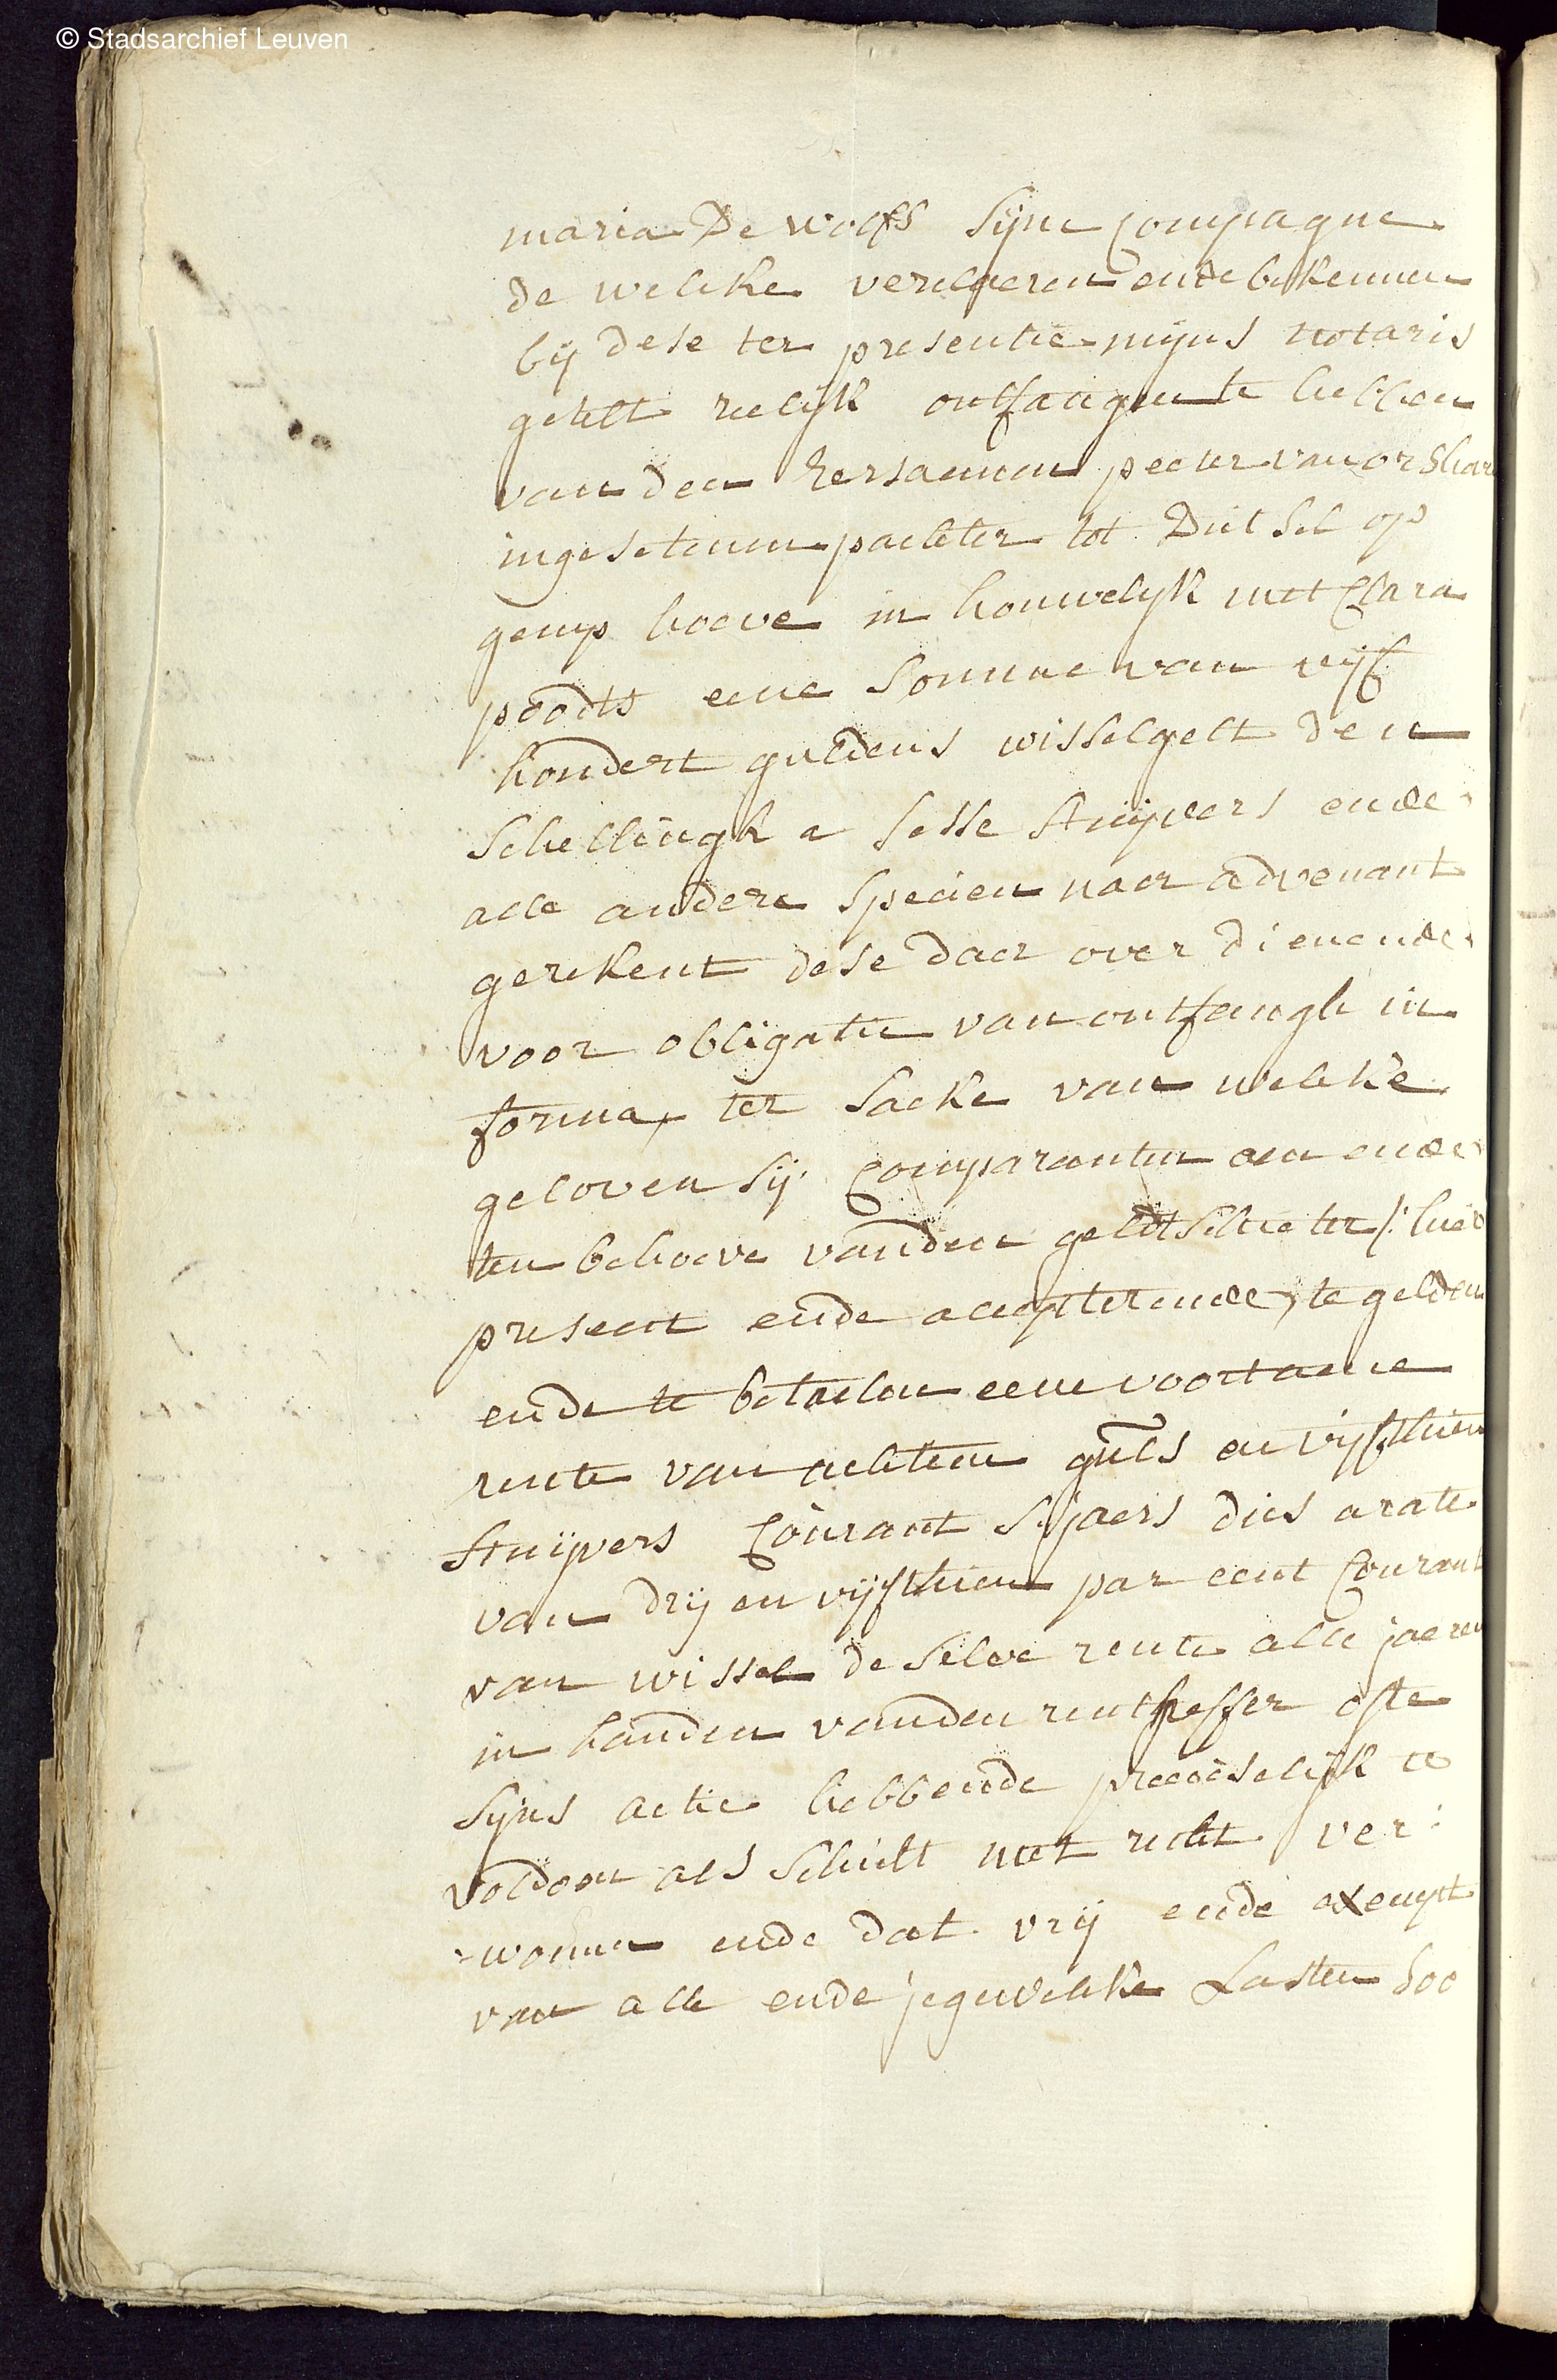 © Stadsarchief Leuven
maria De wolfs sijne compagne
de welcke verclaeren ende bekennen
bij dese ter presentie mijns notaris
getelt reelijk ontfangen te hebben
van den eersaemen peeter van orshav
ingesetenen pachter tot Dutsel op
gemp hoeve in houwelyk met Clara
poodts eene somme van vijf
hondert guldens wisselgelt den
schellingk a sesse stuijvers ende
alle andere specien naer advenant
gerekent dese daer over dienende
voor obligatie van ontfangh in
forma, ter saeke van welcke
geloven sij comparanten aen ende
ten behoeve vanden geldtschieter /: hier
present ende accepterende, te gelden
ende te betaelen eene voortaene
rente van achtien guls en vijfthien
stuijvers courant s'jaers dies a rate
van drij en vijfthien par cent courant
van wissel de selve rente alle jaeren
in handen vanden rentheffer ofte
sijns actie hebbende preciselijk te
voldoen als schult met recht ver:
:wonnen ende dat vrij ende exempt
van alle ende jegewelcke Lasten soo